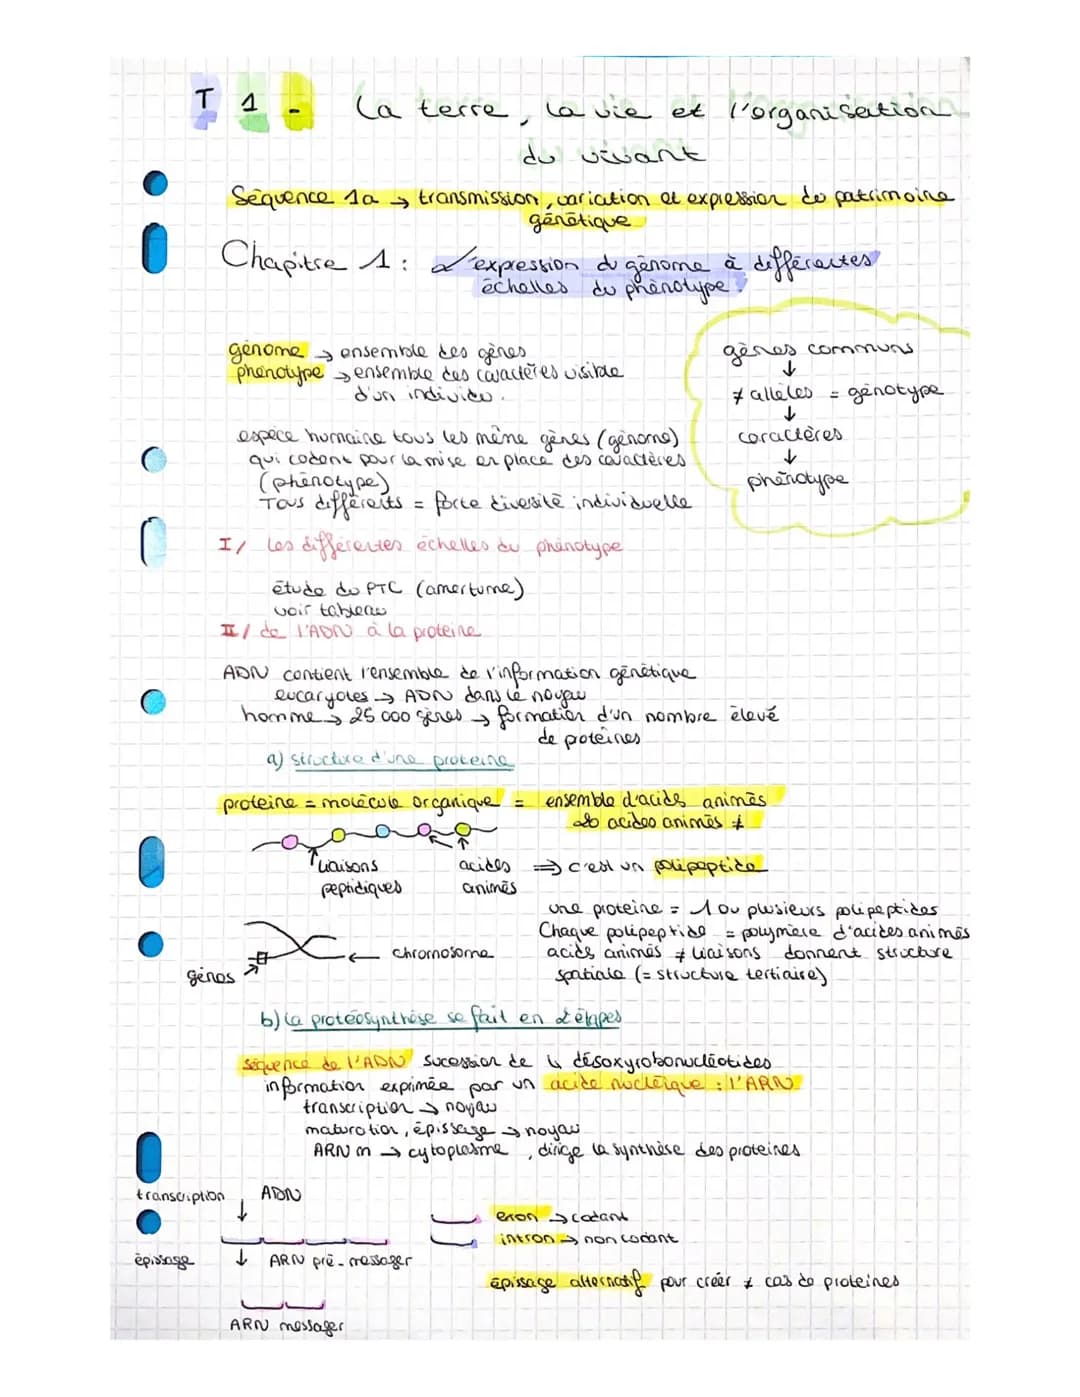 T 1 - La terre, la vie et l'organisation
du vivant
Séquence 1a → transmission, variation et expression du patrimoine
génétique
Chapitre 1 : L'expression du génome à différentes
échelles du phénotype.
génome → ensemble des gènes
phénotype → ensemble des caractères visible
d'un individu.
gènes communs
↓
≠ allèles = génotype
↓
caractères
↓
phénotype
espèce humaine tous les même gènes (génome)
qui codent pour la mise en place des caractères
(phénotype)
Tous différents = forte diversité individuelle
I/ Les différentes échelles du phénotype
étude du PTC (amertume)
voir tableau
II/ de l'ADN à la proteine
ADN contient l'ensemble de l'information génétique
eucaryotes → ADN dans le noyau
homme → 25 000 gènes → formation d'un nombre élevé
de protéines
a) structure d'une proteine
proteine = molécule organique = ensemble d'acids animés
20 acides animés ≠
liaisons
peptidiques
acides
animés
⇒ c'est un polipeptide
une proteine = 1 ou plusieurs polipeptides
Chaque polipeptide = polymère d'acides animés
acids animés ≠ liaisons donnent structure
spatiale (= structure tertiaire)
chromosome
gènes
b) La protéosynthèse se fait en 2 étapes
séquence de l'ADN sucession de 4 désoxyrobonucléotides
information exprimée par un acide nucléique : l'ARN
transcription → noyau
maturation, épissage → noyau
ARN m → cytoplasme, dirige la synthèse des proteines
transcription ADN
↓
épissage ↓ ARN pré-messager
ARN messager
exon → codant
intron → non codant
épissage alternatif pour créer ≠ cas de proteines